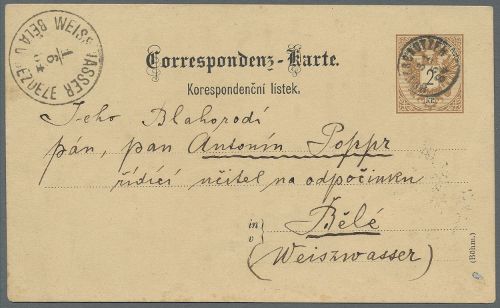 WEISSWASSER
BĚLÁ U BEZDĚZE
1/6
84
Correspondenz-Karte.
Korespondenční lístek.
2
KR.
Jeho Blahorodí
pán, pan Antonín Poppr
řídící učitel na odpočinku
in
v
Bělé
(Weiszwasser)
(Böhm.)